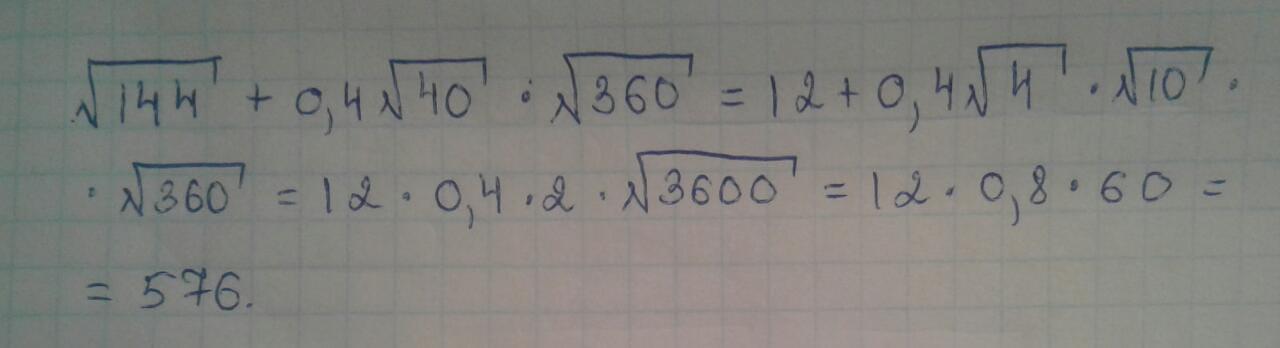 √144 + 0,4√40 · √360 = 12 + 0,4√4 · √10 ·
· √360 = 12 · 0,4 · 2 · √3600 = 12 · 0,8 · 60 =
= 576.